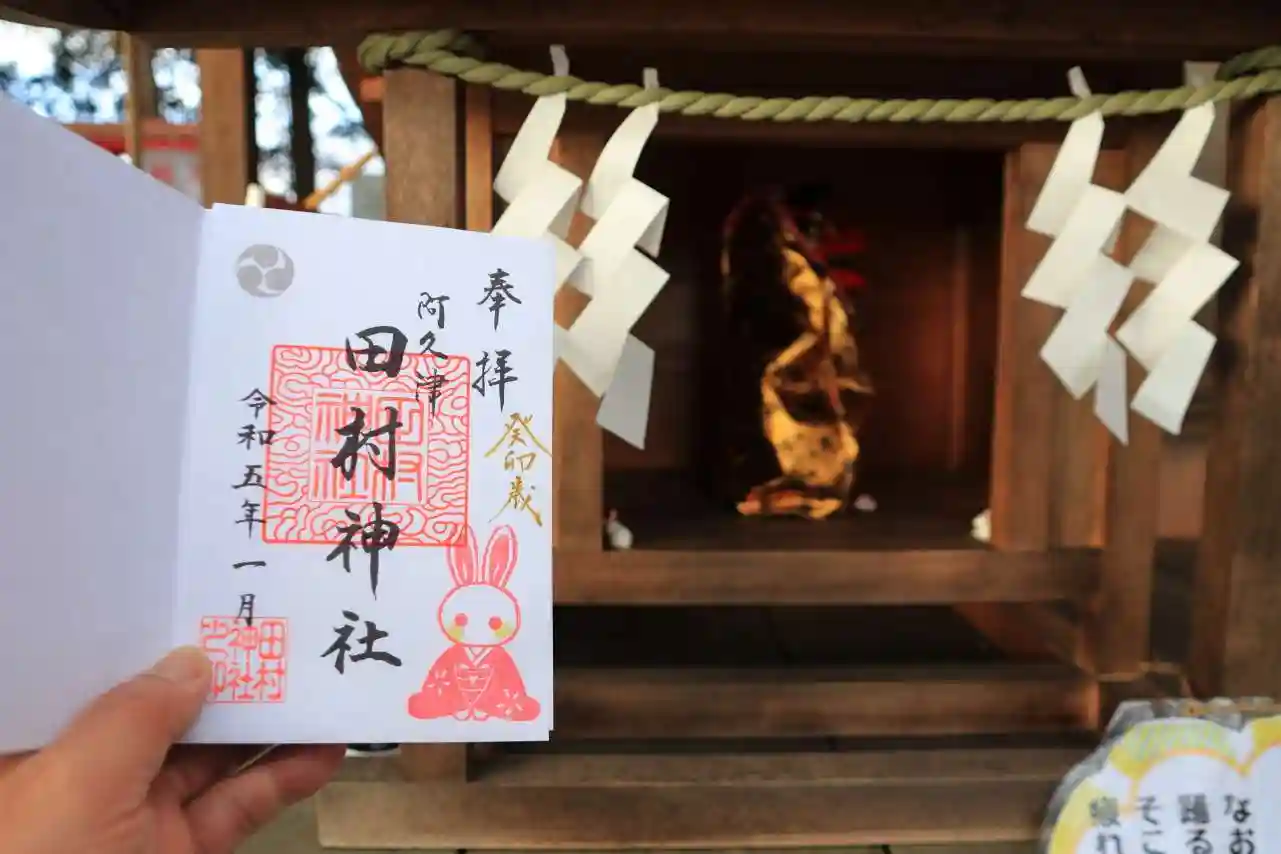 奉拝
癸卯歳
阿久津
田村神社
田村
神社
令和五年一月
田村
神社
なお
踊る
そこ